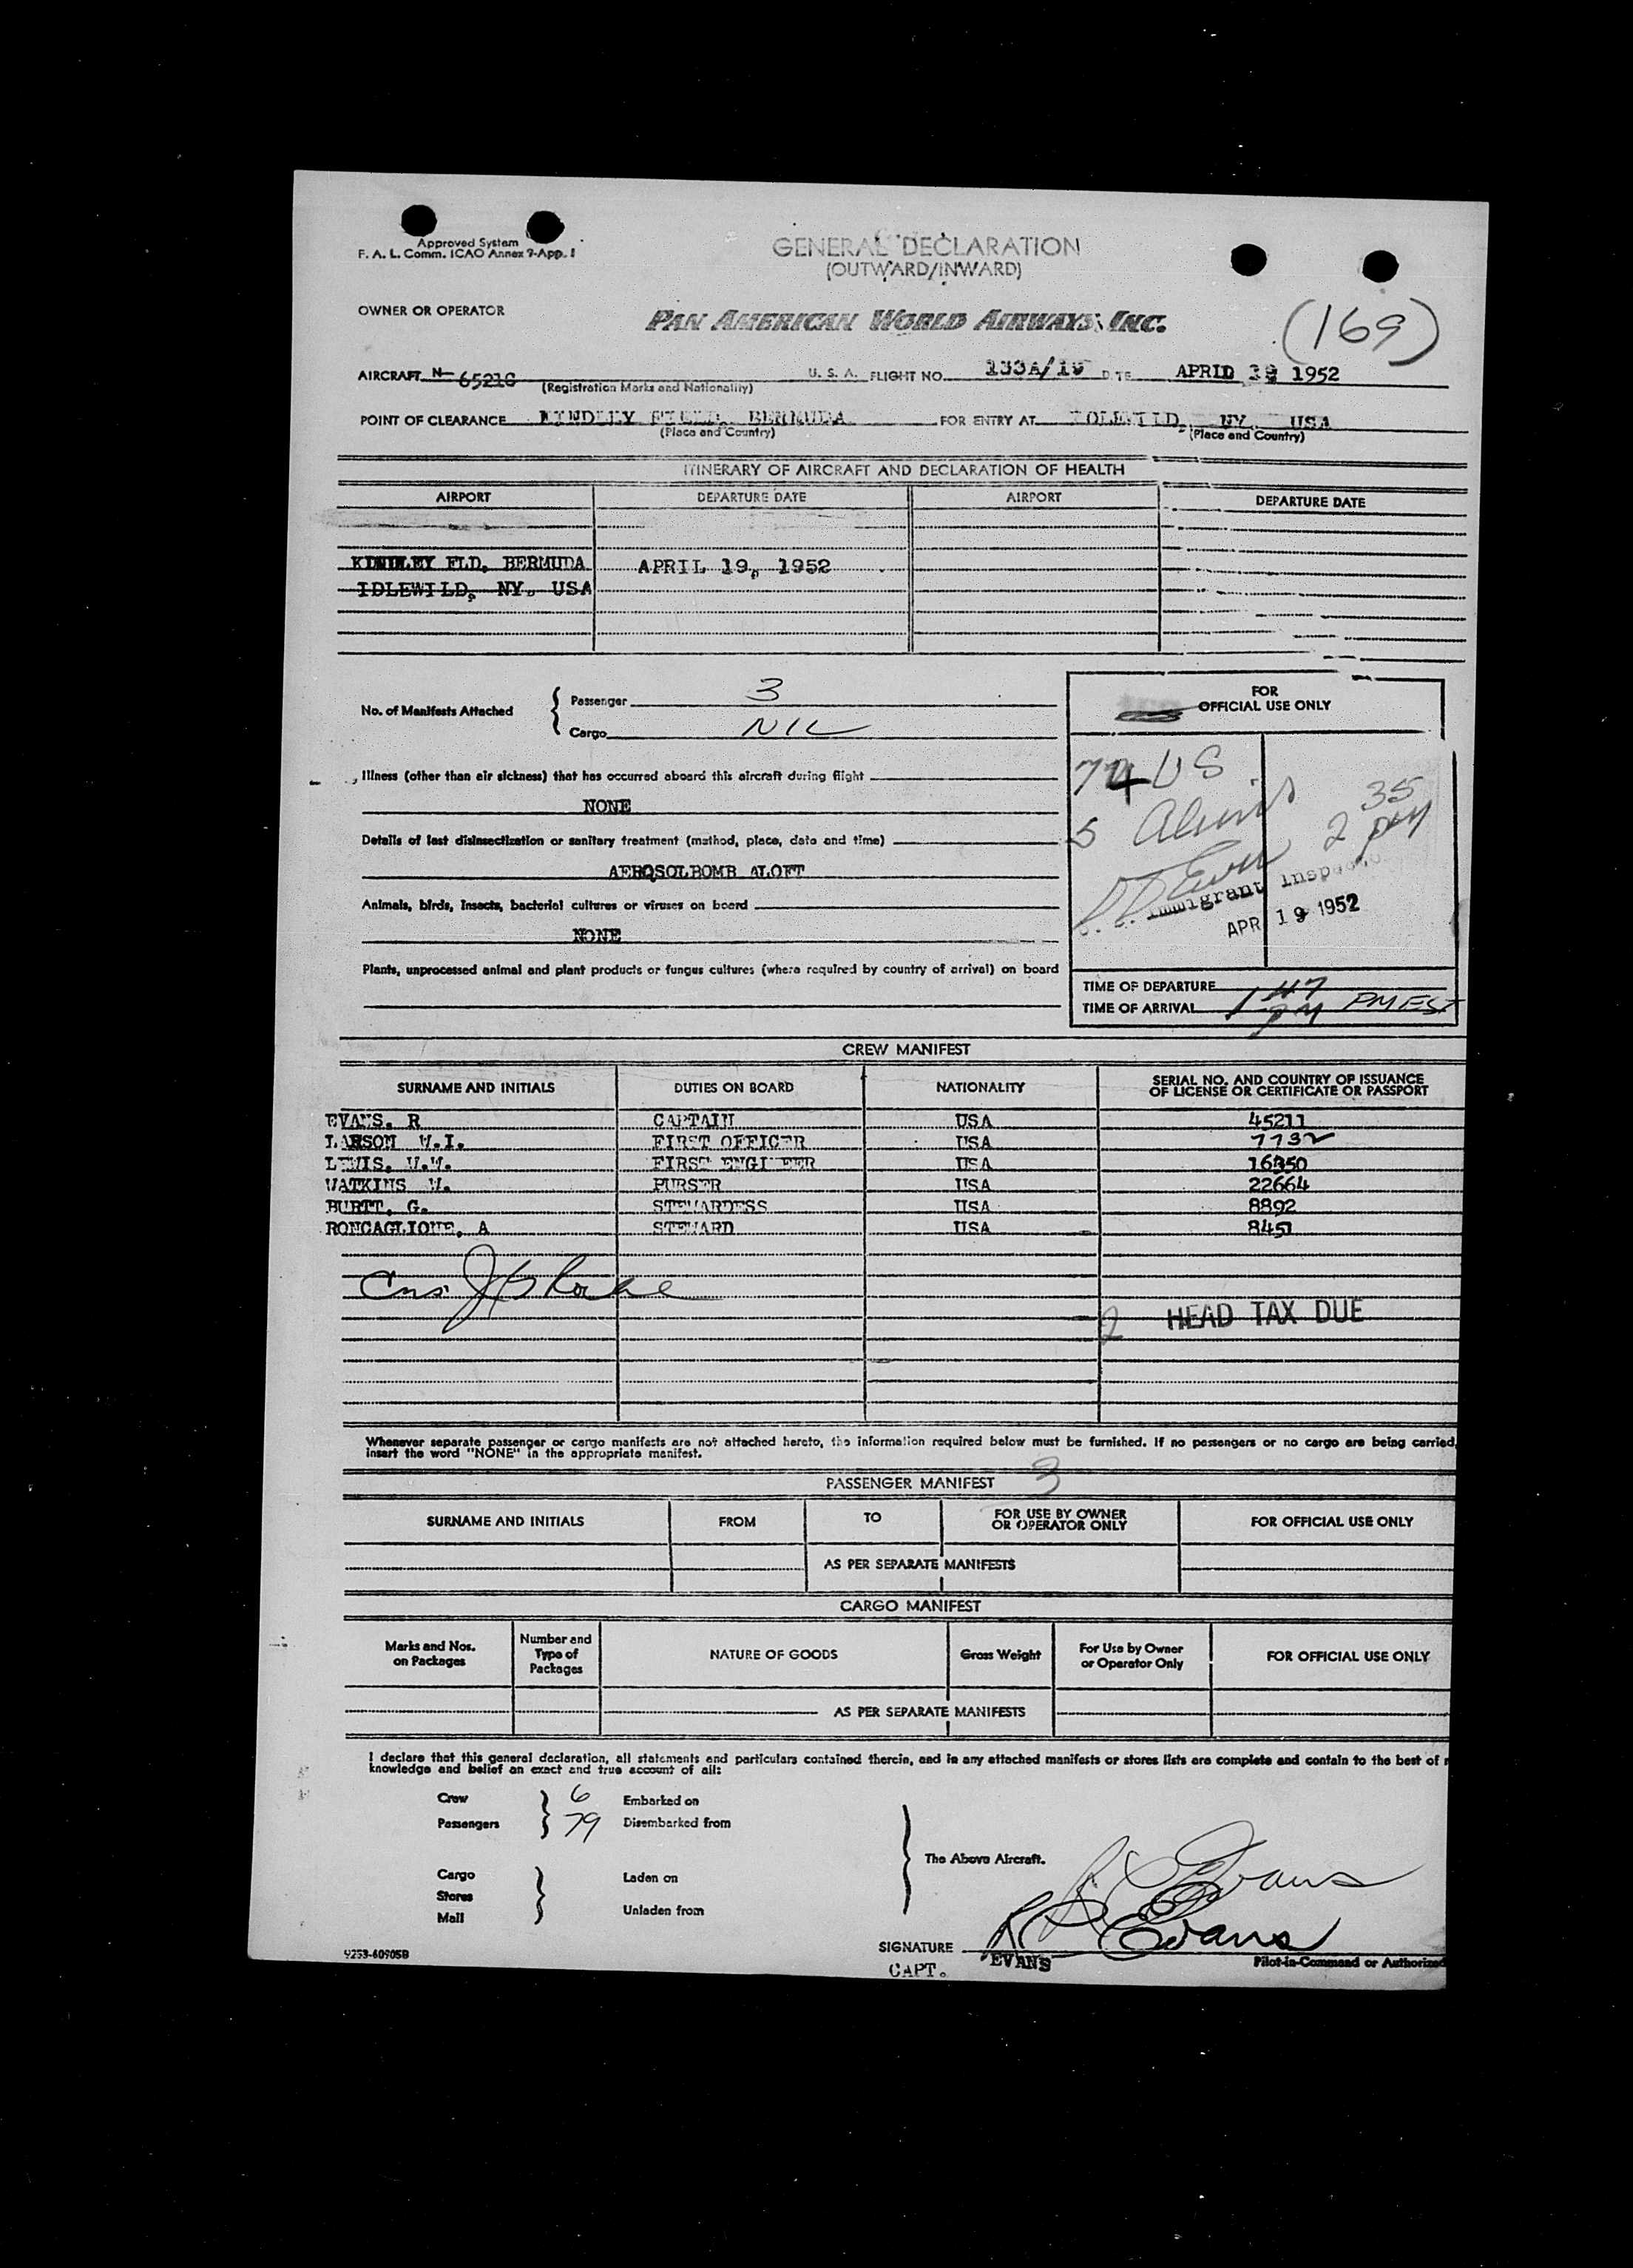 Approved System
F. A. L. Comm. ICAO Annex 9-App. 1
GENERAL DECLARATION
(OUTWARD/INWARD)
OWNER OR OPERATOR
PAN AMERICAN WORLD AIRWAYS, INC.
(169)
AIRCRAFT N- 6521C U. S. A. FLIGHT NO. 133A/19 DATE APRIL 1952
(Registration Marks and Nationality)
POINT OF CLEARANCE KINDLEY FIELD, BERMUDA FOR ENTRY AT IDLEWILD, NY. USA
(Place and Country) (Place and Country)
ITINERARY OF AIRCRAFT AND DECLARATION OF HEALTH
AIRPORT DEPARTURE DATE AIRPORT DEPARTURE DATE
KINDLEY FLD, BERMUDA APRIL 19, 1952
IDLEWILD, NY. USA
No. of Manifests Attached
Passenger 3
Cargo NIL
FOR
OFFICIAL USE ONLY
Illness (other than air sickness) that has occurred aboard this aircraft during flight
NONE
Details of last disinsectization or sanitary treatment (method, place, date and time)
AEROSOLBOMB ALOFT
Animals, birds, insects, bacterial cultures or viruses on board
NONE
Plants, unprocessed animal and plant products or fungus cultures (where required by country of arrival) on board
74 US
5 Aliens
2 35 PM
Immigrant Inspector
APR 19 1952
TIME OF DEPARTURE
TIME OF ARRIVAL 1 47 PM PM EST
CREW MANIFEST
SURNAME AND INITIALS DUTIES ON BOARD NATIONALITY SERIAL NO. AND COUNTRY OF ISSUANCE
OF LICENSE OR CERTIFICATE OR PASSPORT
EVANS, R CAPTAIN USA 45211
LARSON W.I. FIRST OFFICER USA 7732
LEWIS, W.W. FIRST ENGINEER USA 16350
WATKINS W. PURSER USA 22664
BURTT, G. STEWARDESS USA 8892
RONCAGLIONE, A STEWARD USA 8451
2 HEAD TAX DUE
Whenever separate passenger or cargo manifests are not attached hereto, the information required below must be furnished. If no passengers or no cargo are being carried,
insert the word "NONE" in the appropriate manifest.
PASSENGER MANIFEST 3
SURNAME AND INITIALS FROM TO FOR USE BY OWNER
OR OPERATOR ONLY FOR OFFICIAL USE ONLY
AS PER SEPARATE MANIFESTS
CARGO MANIFEST
Marks and Nos.
on Packages Number and
Type of
Packages NATURE OF GOODS Gross Weight For Use by Owner
or Operator Only FOR OFFICIAL USE ONLY
AS PER SEPARATE MANIFESTS
I declare that this general declaration, all statements and particulars contained therein, and in any attached manifests or stores lists are complete and contain to the best of
knowledge and belief an exact and true account of all:
Crew 6 Embarked on
Passengers 79 Disembarked from
The Above Aircraft.
Cargo Laden on
Stores
Mail Unladen from
R D Evans
SIGNATURE R D Evans
CAPT. EVANS Pilot-in-Command or Authorized
9253-60905B